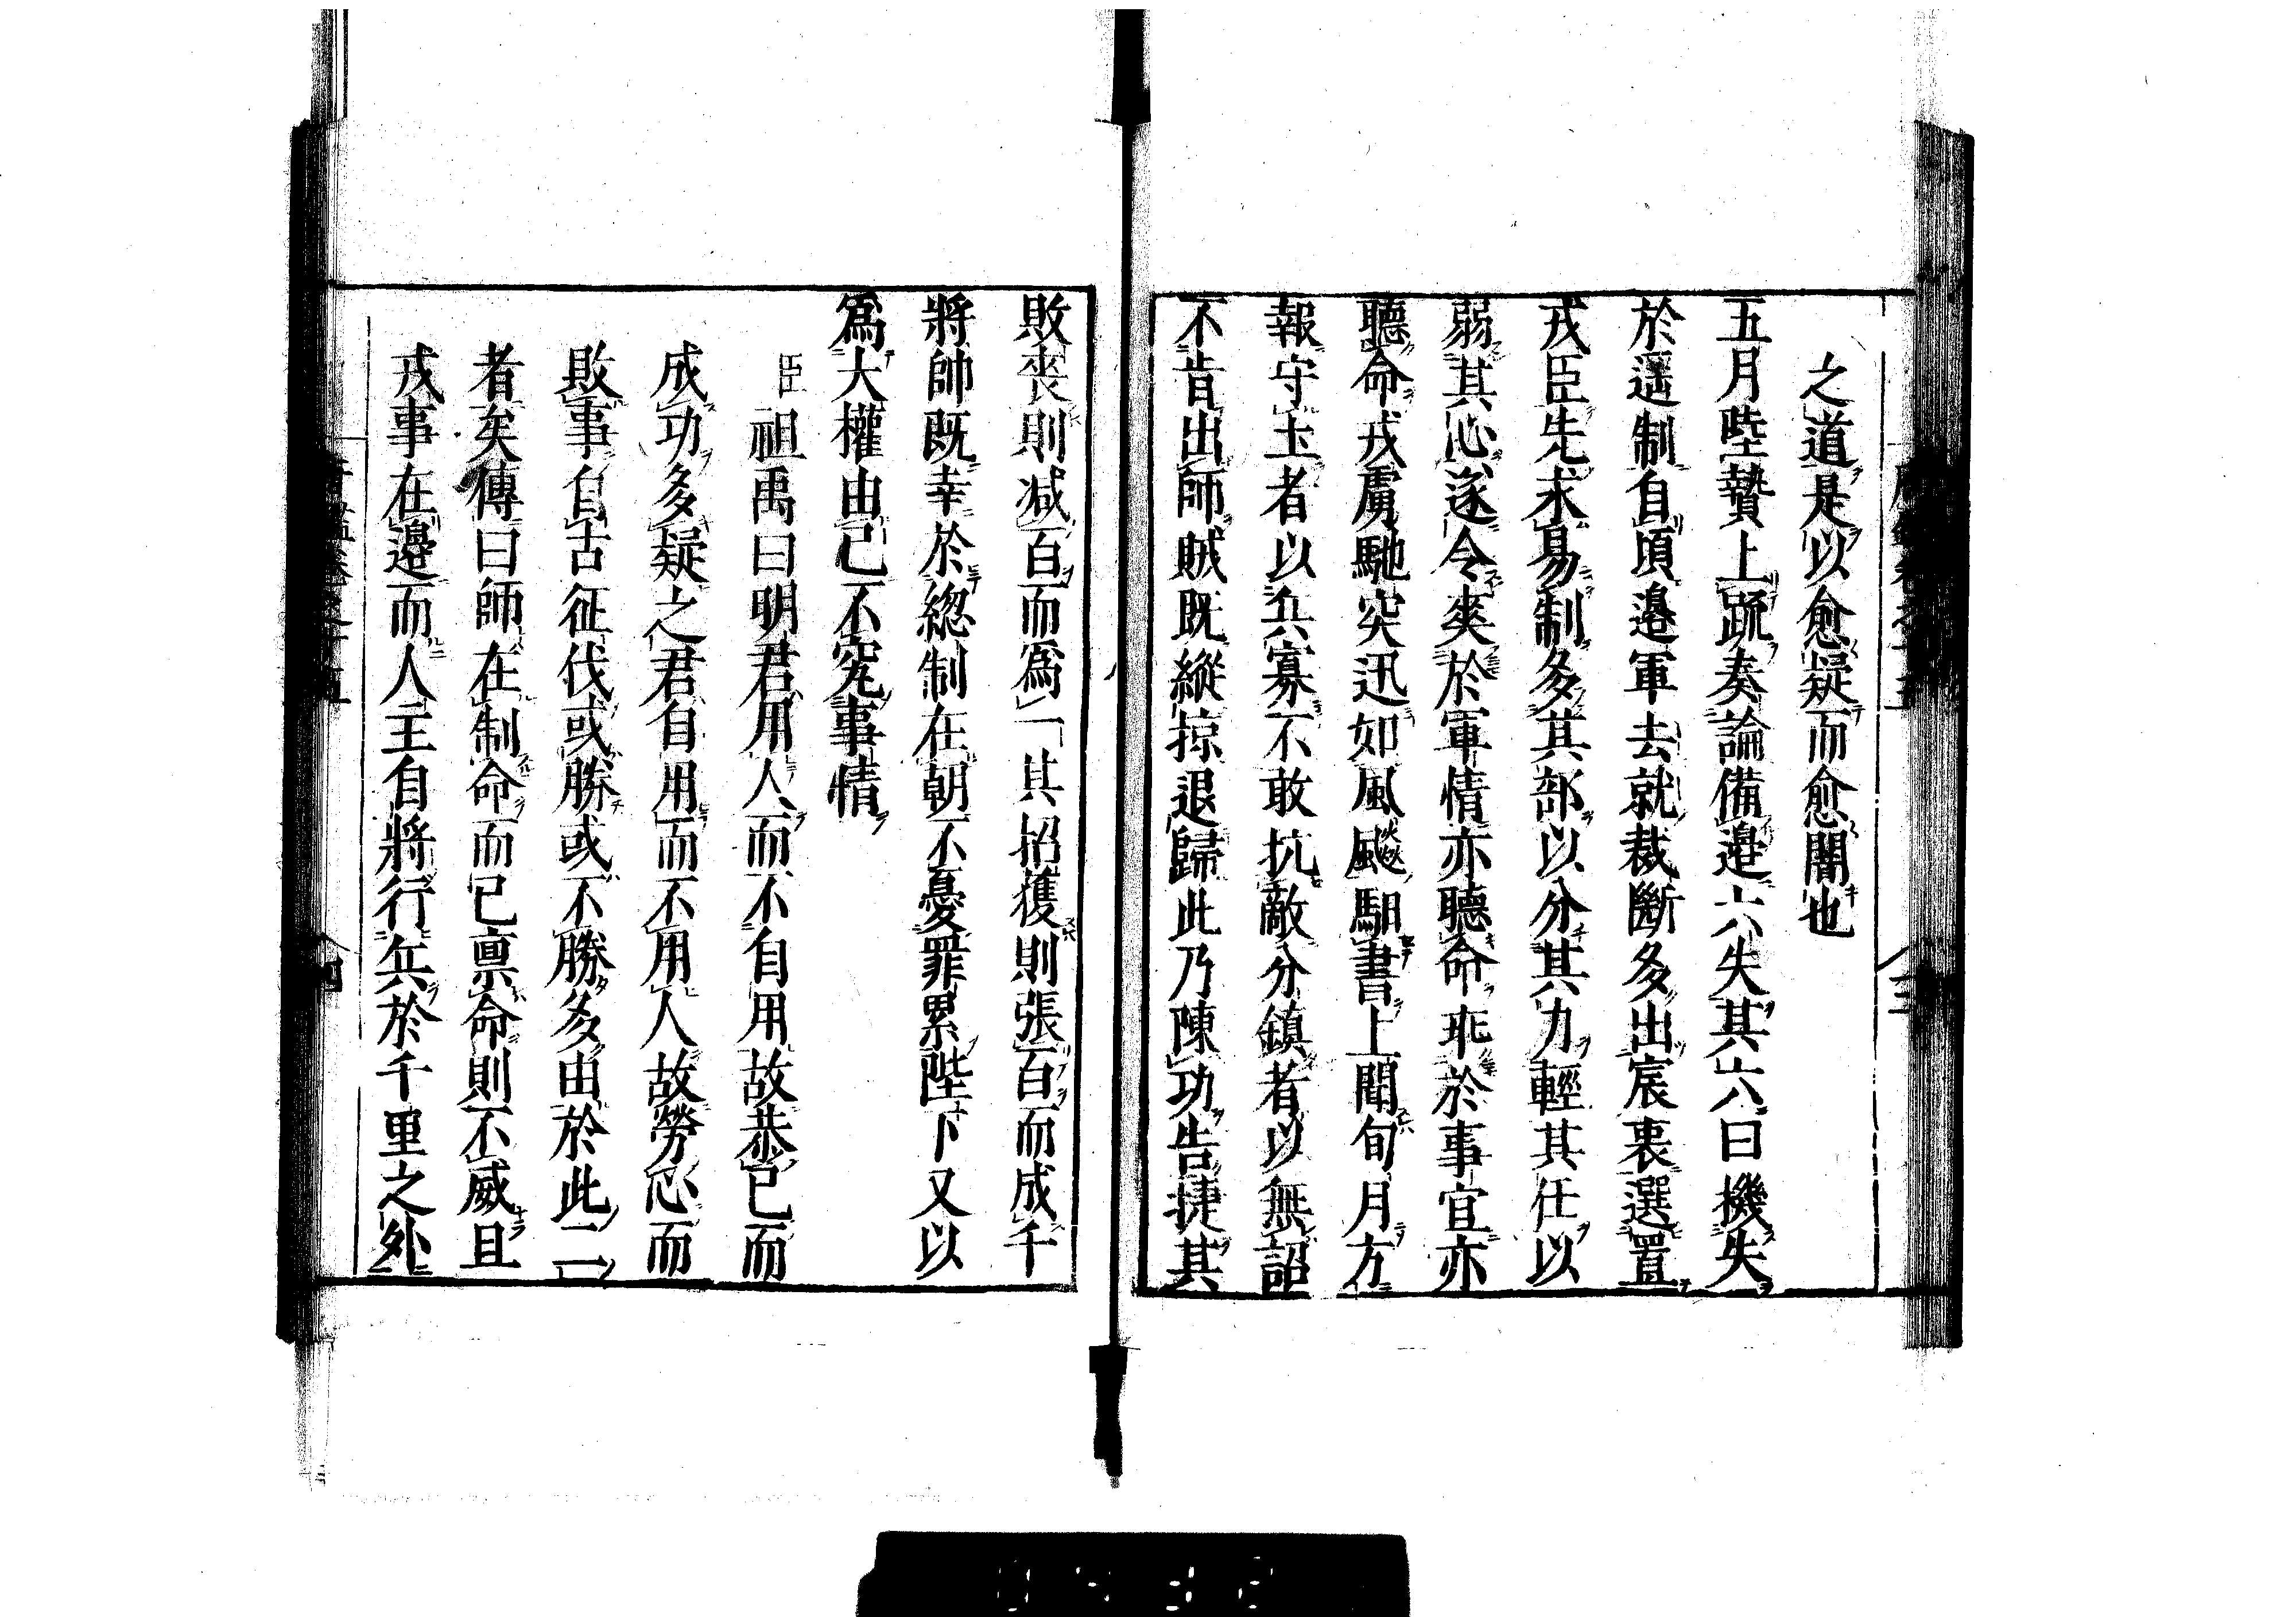 之道是以愈疑而愈闇也
五月陸贄上疏奏論備邉六失其六曰機失
於遥制自頃邉軍去就裁斷多出宸衷選置
戎臣先求易制多其部以分其力輕其任以
弱其心遂令爽於軍情亦聽命乖於事宜亦
聽命戎虜馳突迅如風飈馹書上聞旬月方
報守土者以兵寡不敢抗敵分鎮者以無詔
不肯出師賊既縱掠退歸此乃陳功告捷其
敗喪則减百而爲一其招獲則張百而成千
將帥既幸於緫制在朝不憂罪累陛下又以
爲大權由已不究事情
臣祖禹曰明君用人而不自用故恭已而
成功多疑之君自用而不用人故勞心而
敗事自古征伐或勝或不勝多由於此二
者矣傳曰師在制命而已禀命則不威且
戎事在邉而人主自將行兵於千里之外